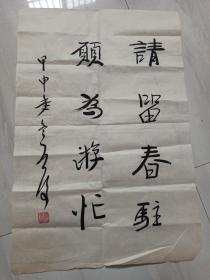 請留春駐
願為游忙
甲申年